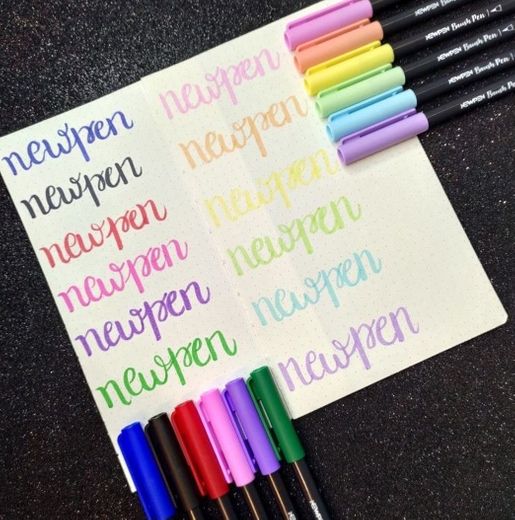 newpen
newpen
newpen
newpen
newpen
newpen
newpen
newpen
newpen
newpen
newpen
newpen
NEWPEN Brush Pen
NEWPEN Brush Pen
NEWPEN Brush Pen
NEWPEN Brush Pen
NEWPEN
NEWPEN